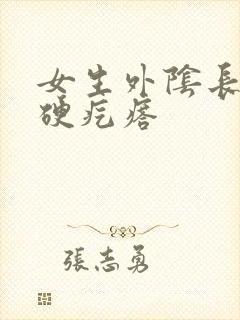 女生外陰長
硬疙瘩
張志勇